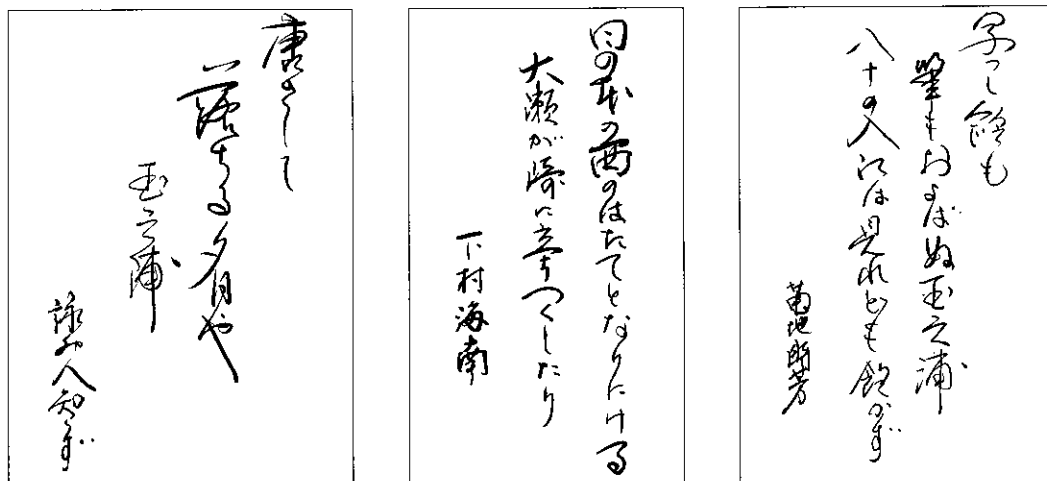 筆もおよばぬ玉之浦
八十の入江は見れども飽かず
日の本の西のはたてとなりにける
大瀬が崎に立ちつくしたり
下村海南
唐さして
落ちる夕月や
玉之浦
詠み人知らず